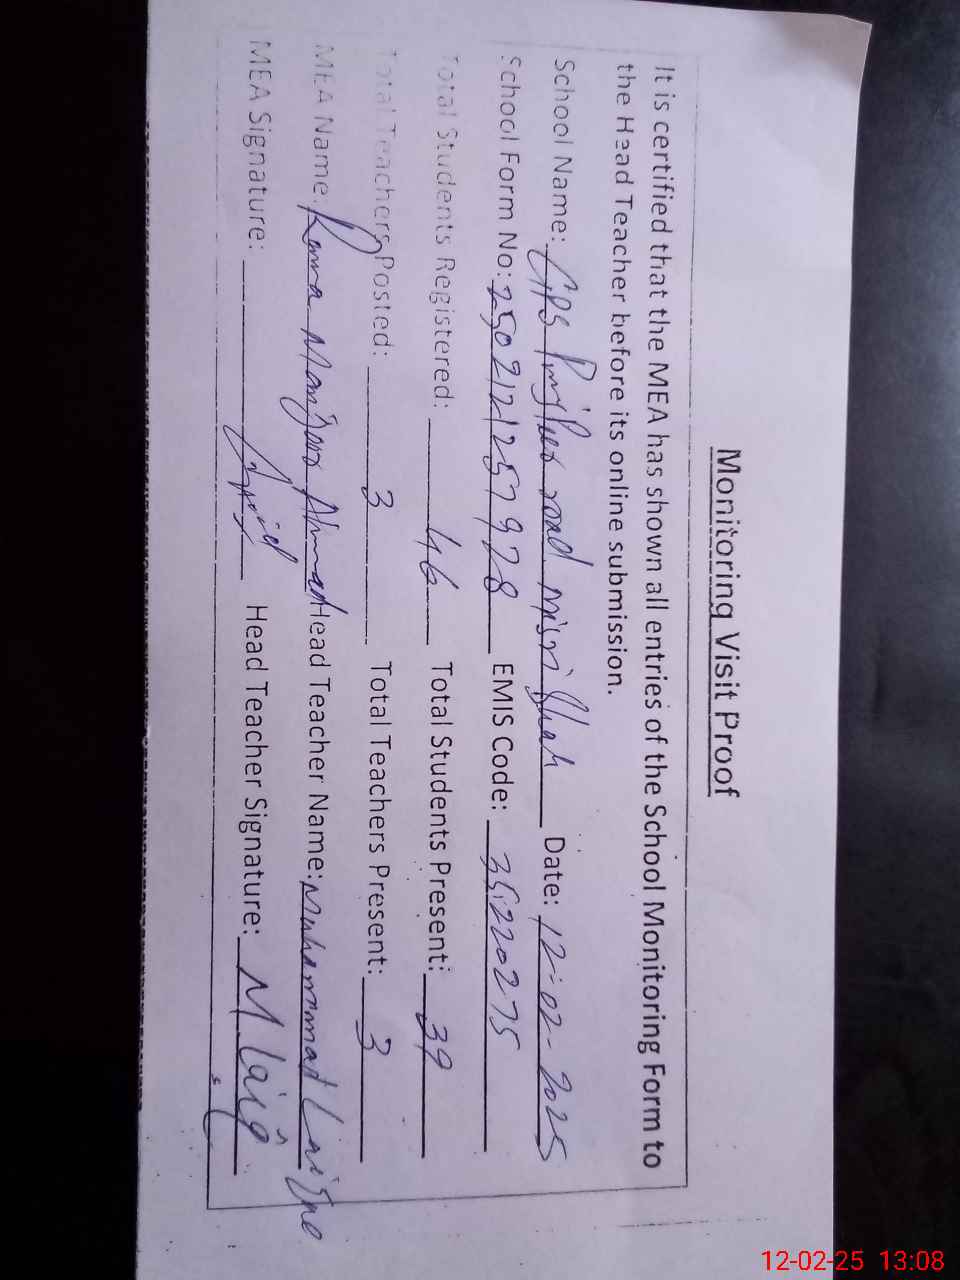 Monitoring Visit Proof
It is certified that the MEA has shown all entries of the School Monitoring Form to
the Head Teacher before its online submission.
School Name: GPS road misri Shah Date: 12-02-2025
School Form No: EMIS Code: 35220275
Total Students Registered: 46 Total Students Present: 39
Total Teachers Posted: 3 Total Teachers Present: 3
MEA Name: Rana Ahmad Head Teacher Name: Muhammad
MEA Signature: Head Teacher Signature: M Laiq
12-02-25 13:08